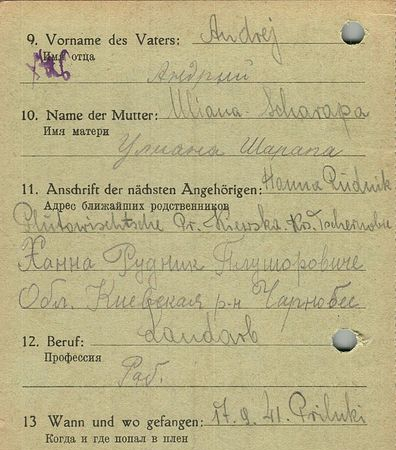 9. Vorname des Vaters: Andrej
Имя отца
Андрий
10. Name der Mutter: Uliana Scharapa
Имя матери
Улиана Шарапа
11. Anschrift der nächsten Angehörigen: Hanna Rudnik
Адрес ближайших родственников
Plutowischtsche Pr. Kiewska Kr. Tschernobie
Ханна Рудник Плуторовиче
Обл. Киевская р-н Чарнобес
12. Beruf: Landarb
Профессия
Раб.
13 Wann und wo gefangen: 17.9.41. Priluki
Когда и где попал в плен